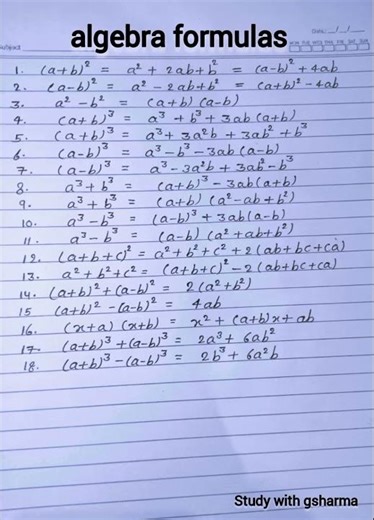 algebra formulas
1. (a+b)² = a² + 2ab+b² = (a-b)² + 4ab
2. (a-b)² = a² - 2ab+b² = (a+b)² - 4ab
3. a² - b² = (a+b) (a-b)
4. (a+b)³ = a³ + b³ + 3ab (a+b)
5. (a+b)³ = a³ + 3a²b + 3ab² + b³
6. (a-b)³ = a³ - b³ - 3ab (a-b)
7. (a-b)³ = a³ - 3a²b + 3ab² - b³
8. a³ + b³ = (a+b)³ - 3ab(a+b)
9. a³ + b³ = (a+b) (a² - ab + b²)
10. a³ - b³ = (a-b)³ + 3ab(a-b)
11. a³ - b³ = (a-b) (a² + ab + b²)
12. (a+b+c)² = a² + b² + c² + 2 (ab+bc+ca)
13. a² + b² + c² = (a+b+c)² - 2 (ab+bc+ca)
14. (a+b)² + (a-b)² = 2(a²+b²)
15 (a+b)² - (a-b)² = 4ab
16. (x+a) (x+b) = x² + (a+b)x + ab
17. (a+b)³ + (a-b)³ = 2a³ + 6ab²
18. (a+b)³ - (a-b)³ = 2b³ + 6a²b
Study with gsharma